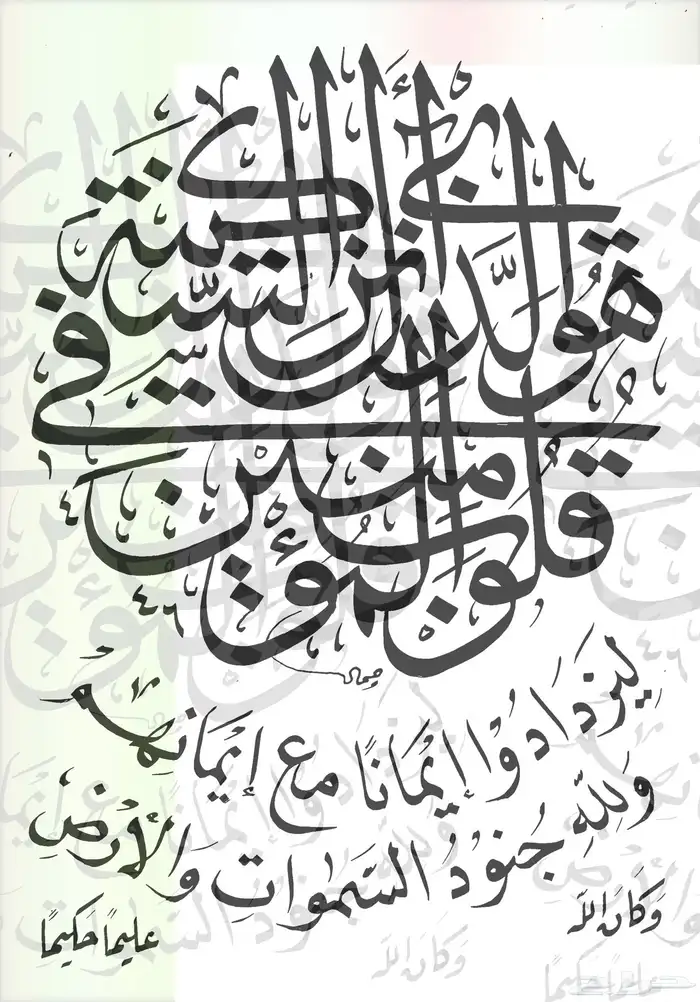 هُوَ الَّذِي أَنْزَلَ السَّكِينَةَ
فِي قُلُوبِ الْمُؤْمِنِينَ
لِيَزْدَادُوا إِيْمَانًا مَعَ إِيْمَانِهِمْ
وَلِلّٰهِ جُنُوْدُ السَّمٰوَاتِ وَالْأَرْضِ
وَكَانَ اللّٰه
عليمًا حَكيمًا